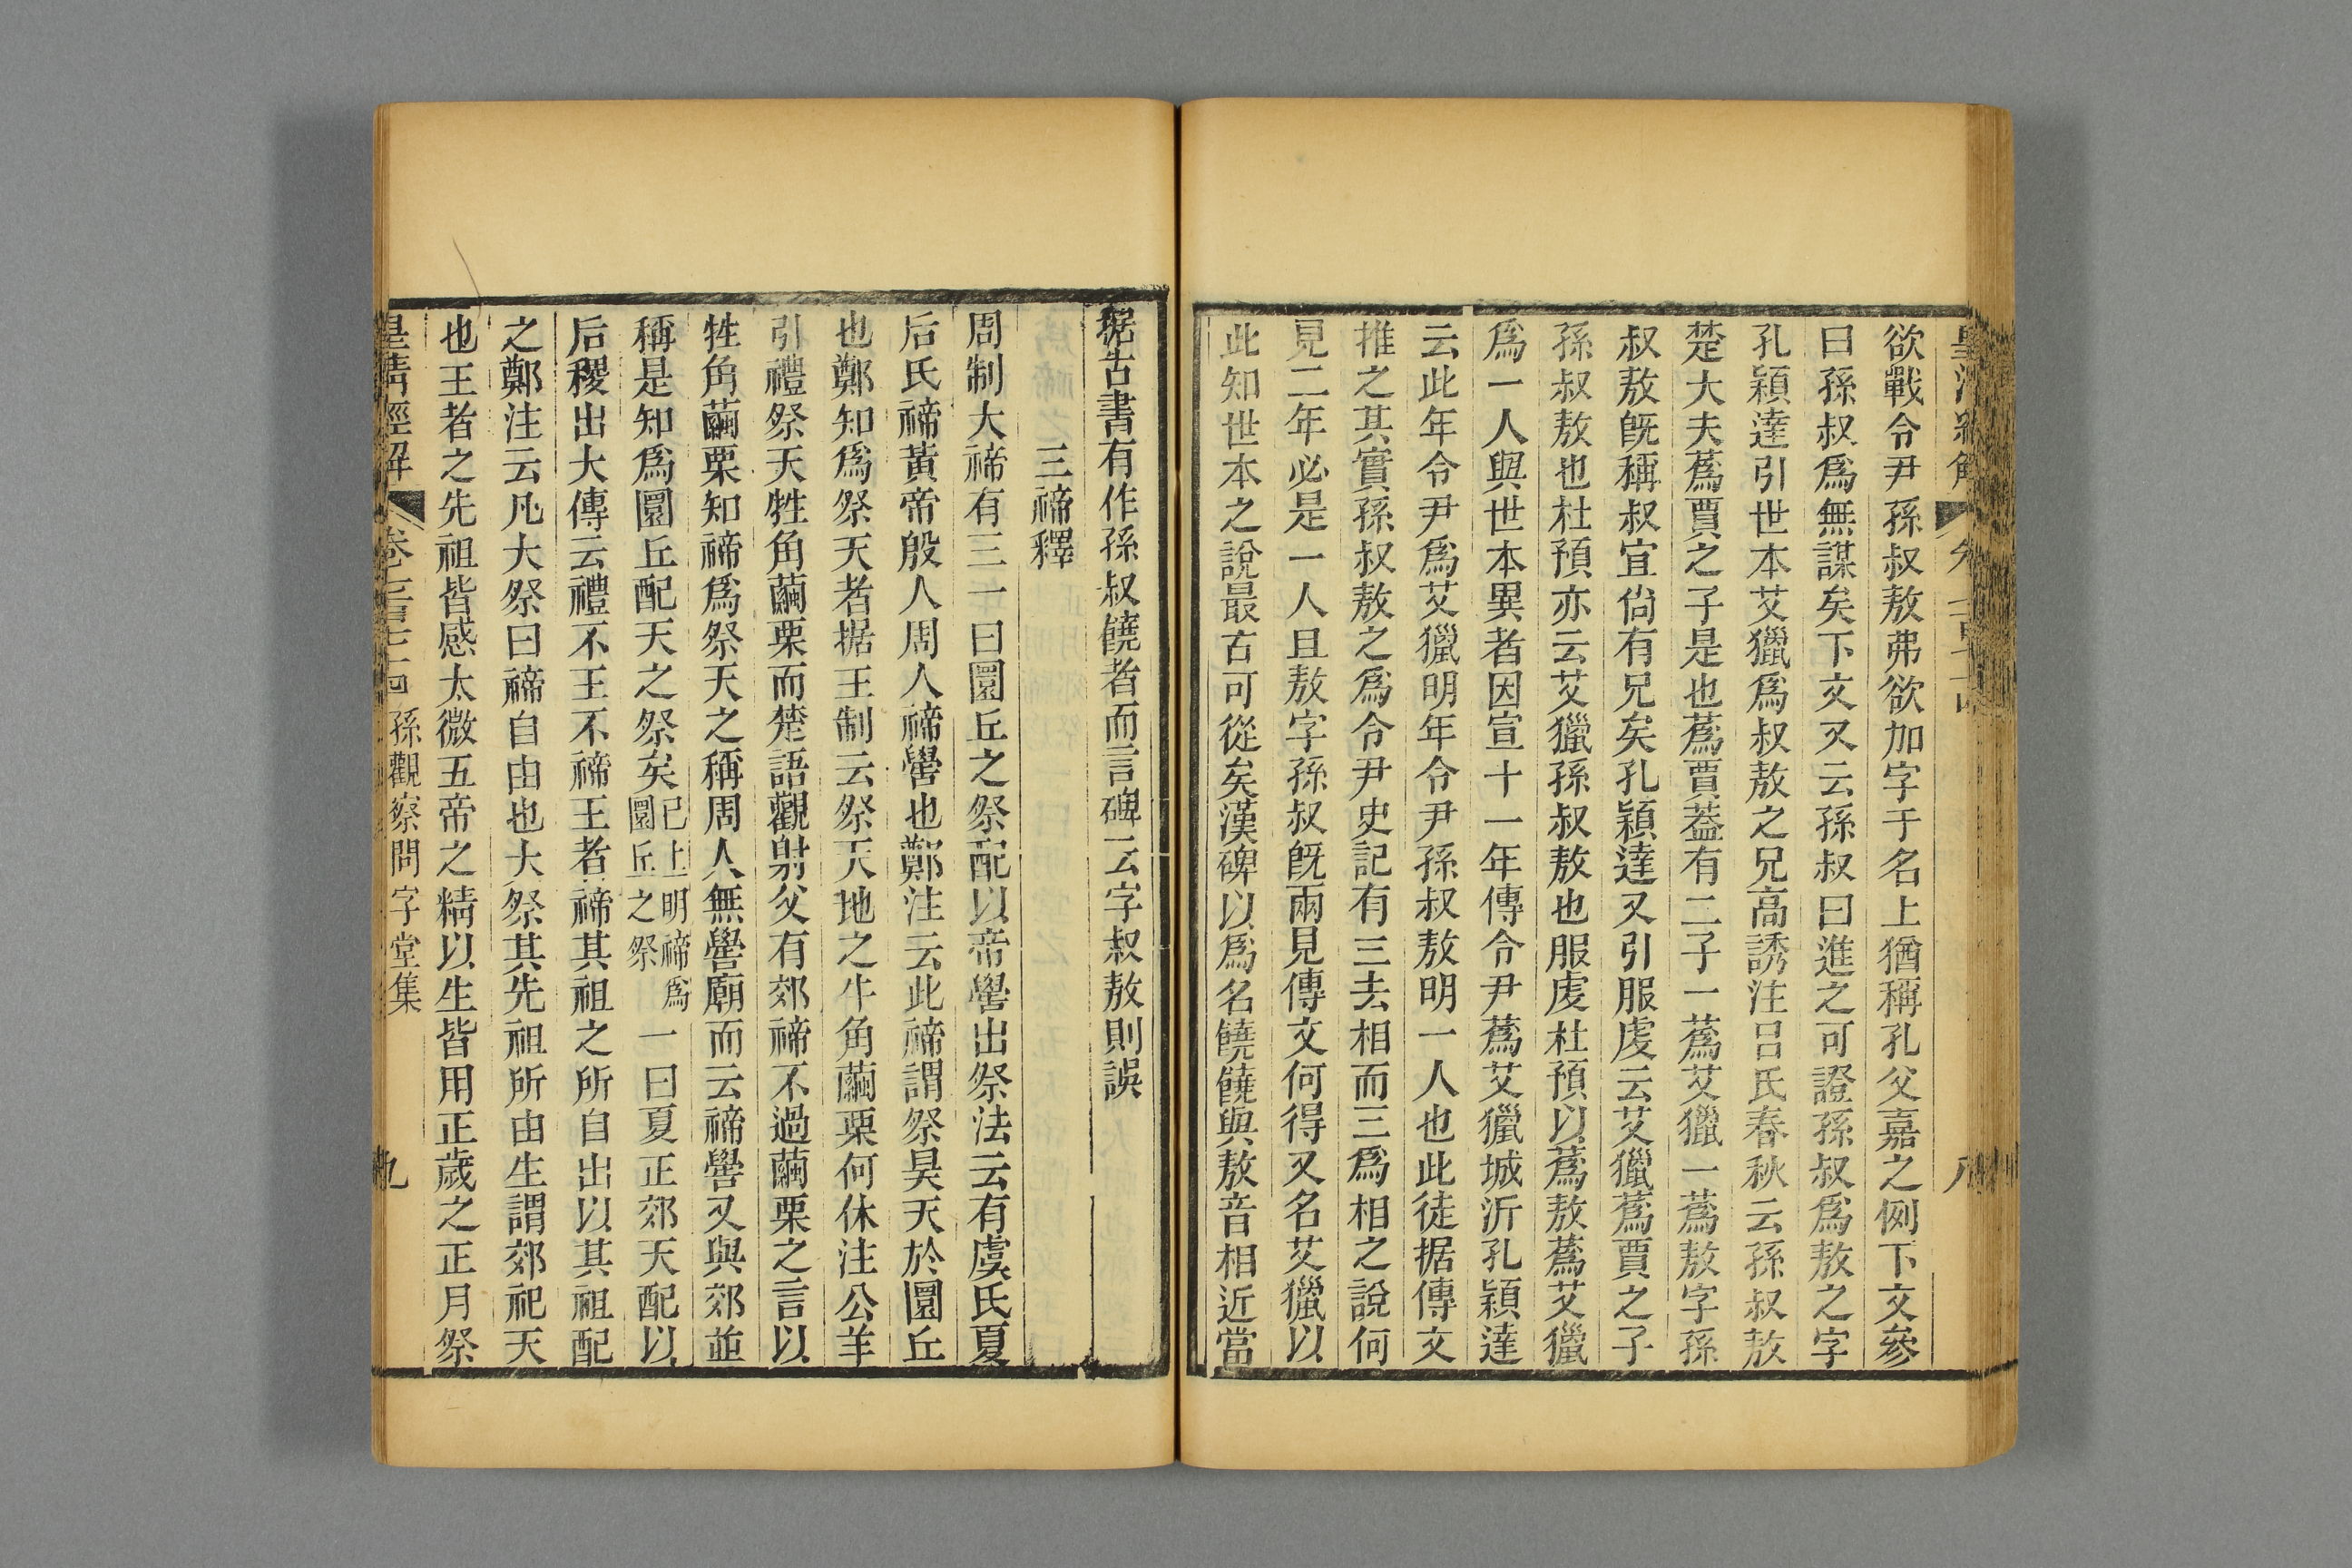 欲戰令尹孫叔敖弗欲加字于名上猶稱孔父嘉之例下文參
曰孫叔爲無謀矣下文又云孫叔曰進之可證孫叔爲敖之字
孔穎達引世本艾獵爲叔敖之兄高誘注呂氏春秋云孫叔敖
楚大夫蒍賈之子是也蒍賈葢有二子一蒍艾獵一蒍敖字孫
叔敖旣稱叔宜尙有兄矣孔穎達又引服虔云艾獵蒍賈之子
孫叔敖也杜預亦云艾獵孫叔敖也服虔杜預以蒍敖蒍艾獵
爲一人與世本異者因宣十一年傳令尹蒍艾獵城沂孔穎達
云此年令尹爲艾獵明年令尹孫叔敖明一人也此徒据傳文
推之其實孫叔敖之爲令尹史記有三去相而三爲相之說何
見二年必是一人且敖字孫叔旣兩見傳文何得又名艾獵以
此知世本之說最古可從矣漢碑以爲名饒饒與敖音相近當
据古書有作孫叔饒者而言碑云字叔敖則誤
三禘釋
周制大禘有三一曰圜丘之祭配以帝嚳出祭法云有虞氏夏
后氏禘黃帝殷人周人禘嚳也鄭注云此禘謂祭昊天於圜丘
也鄭知爲祭天者据王制云祭天地之牛角繭栗何休注公羊
引禮祭天牲角繭栗而楚語觀射父有郊禘不過繭栗之言以
牲角繭栗知禘爲祭天之稱周人無嚳廟而云禘嚳又與郊並
稱是知爲圜丘配天之祭矣已上明禘爲圜丘之祭一曰夏正郊天配以
后稷出大傳云禮不王不禘王者禘其祖之所自出以其祖配
之鄭注云凡大祭曰禘自由也大祭其先祖所由生謂郊祀天
也王者之先祖皆感太微五帝之精以生皆用正歲之正月祭
皇清經解 卷七百七十四 孫觀察問字堂集 九